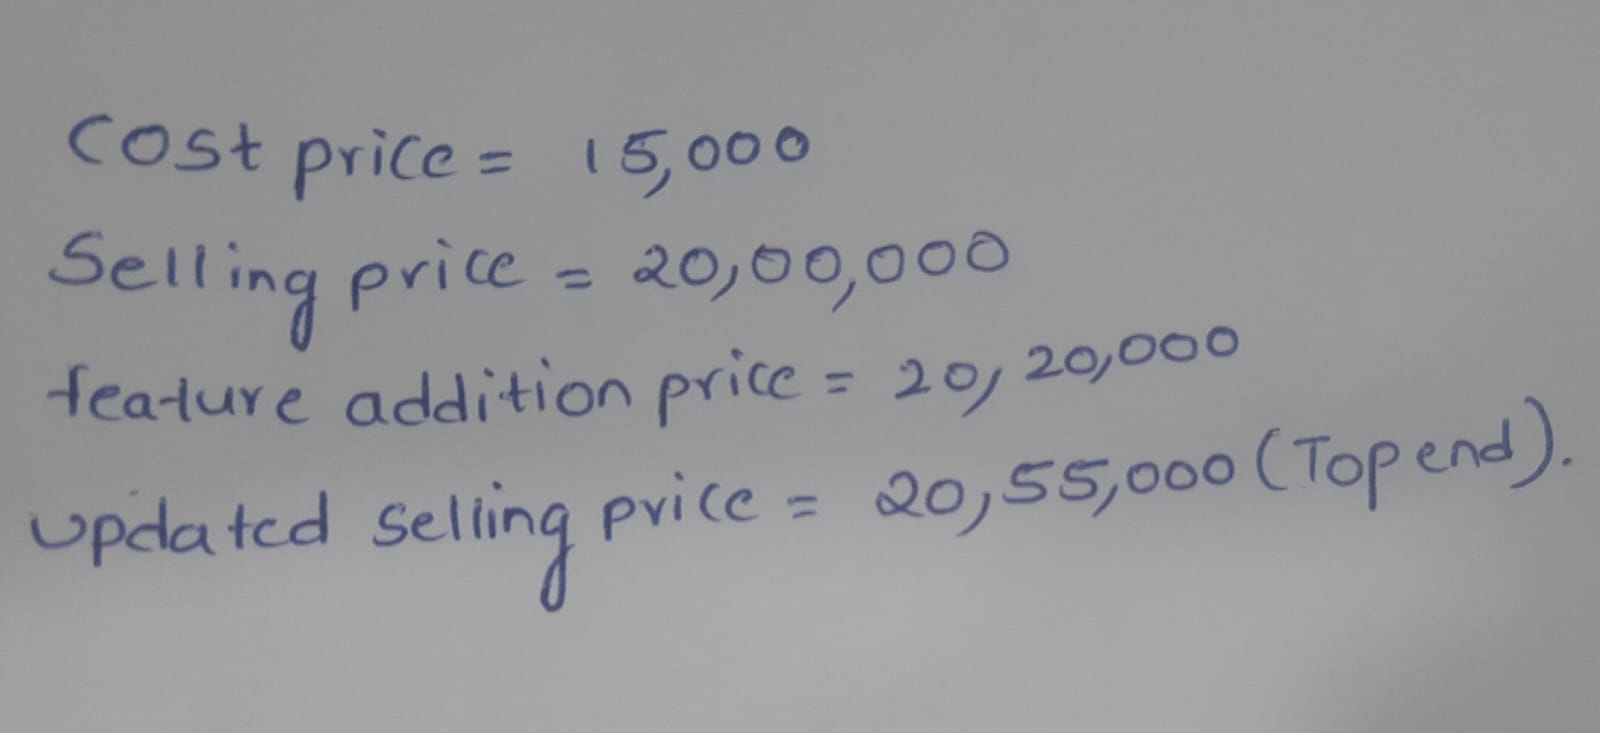 Cost price = 15,000
Selling price = 20,00,000
feature addition price = 20,20,000
updated selling price = 20,55,000 (Top end).